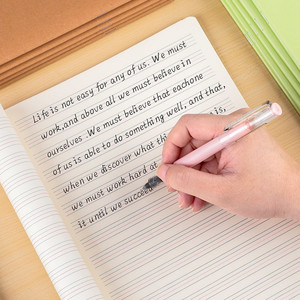 Life is not easy for any of us. We must
work,and above all we must believe in
ourselves .We must believe that eachone
of us is able to do something well, and that,
when we discover what this is,
we must work hard at
it until we succeed